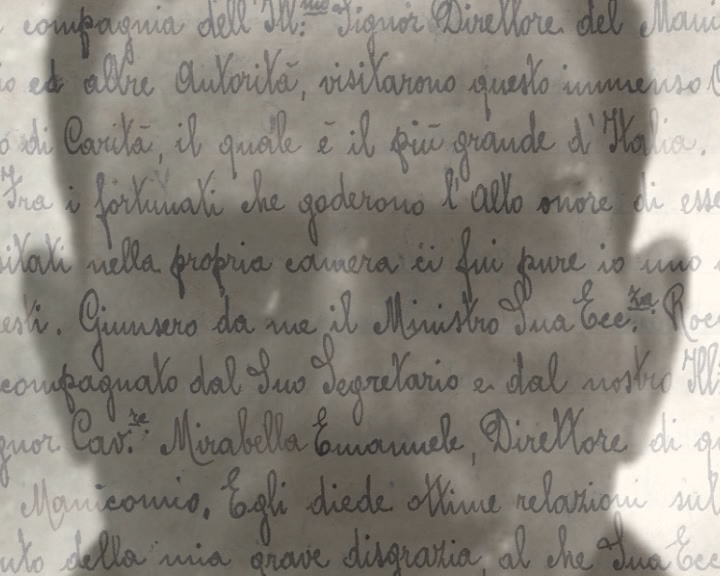 compagnia dell'Ill:mo Signor Direttore del Mani
io ed altre Autorità, visitarono questo immenso
o di Carità, il quale è il più grande d'Italia.
Fra i fortunati che goderono l'alto onore di esse
sitati nella propria camera ci fui pure io uno
esti. Giunsero da me il Ministro Sua Ecc.za Roc
compagnato dal Suo Segretario e dal nostro Ill
gnor Cav.re Mirabella Emanuele, Direttore di qu
Manicomio. Egli diede ottime relazioni sul
uto della mia grave disgrazia, al che Sua Ecc